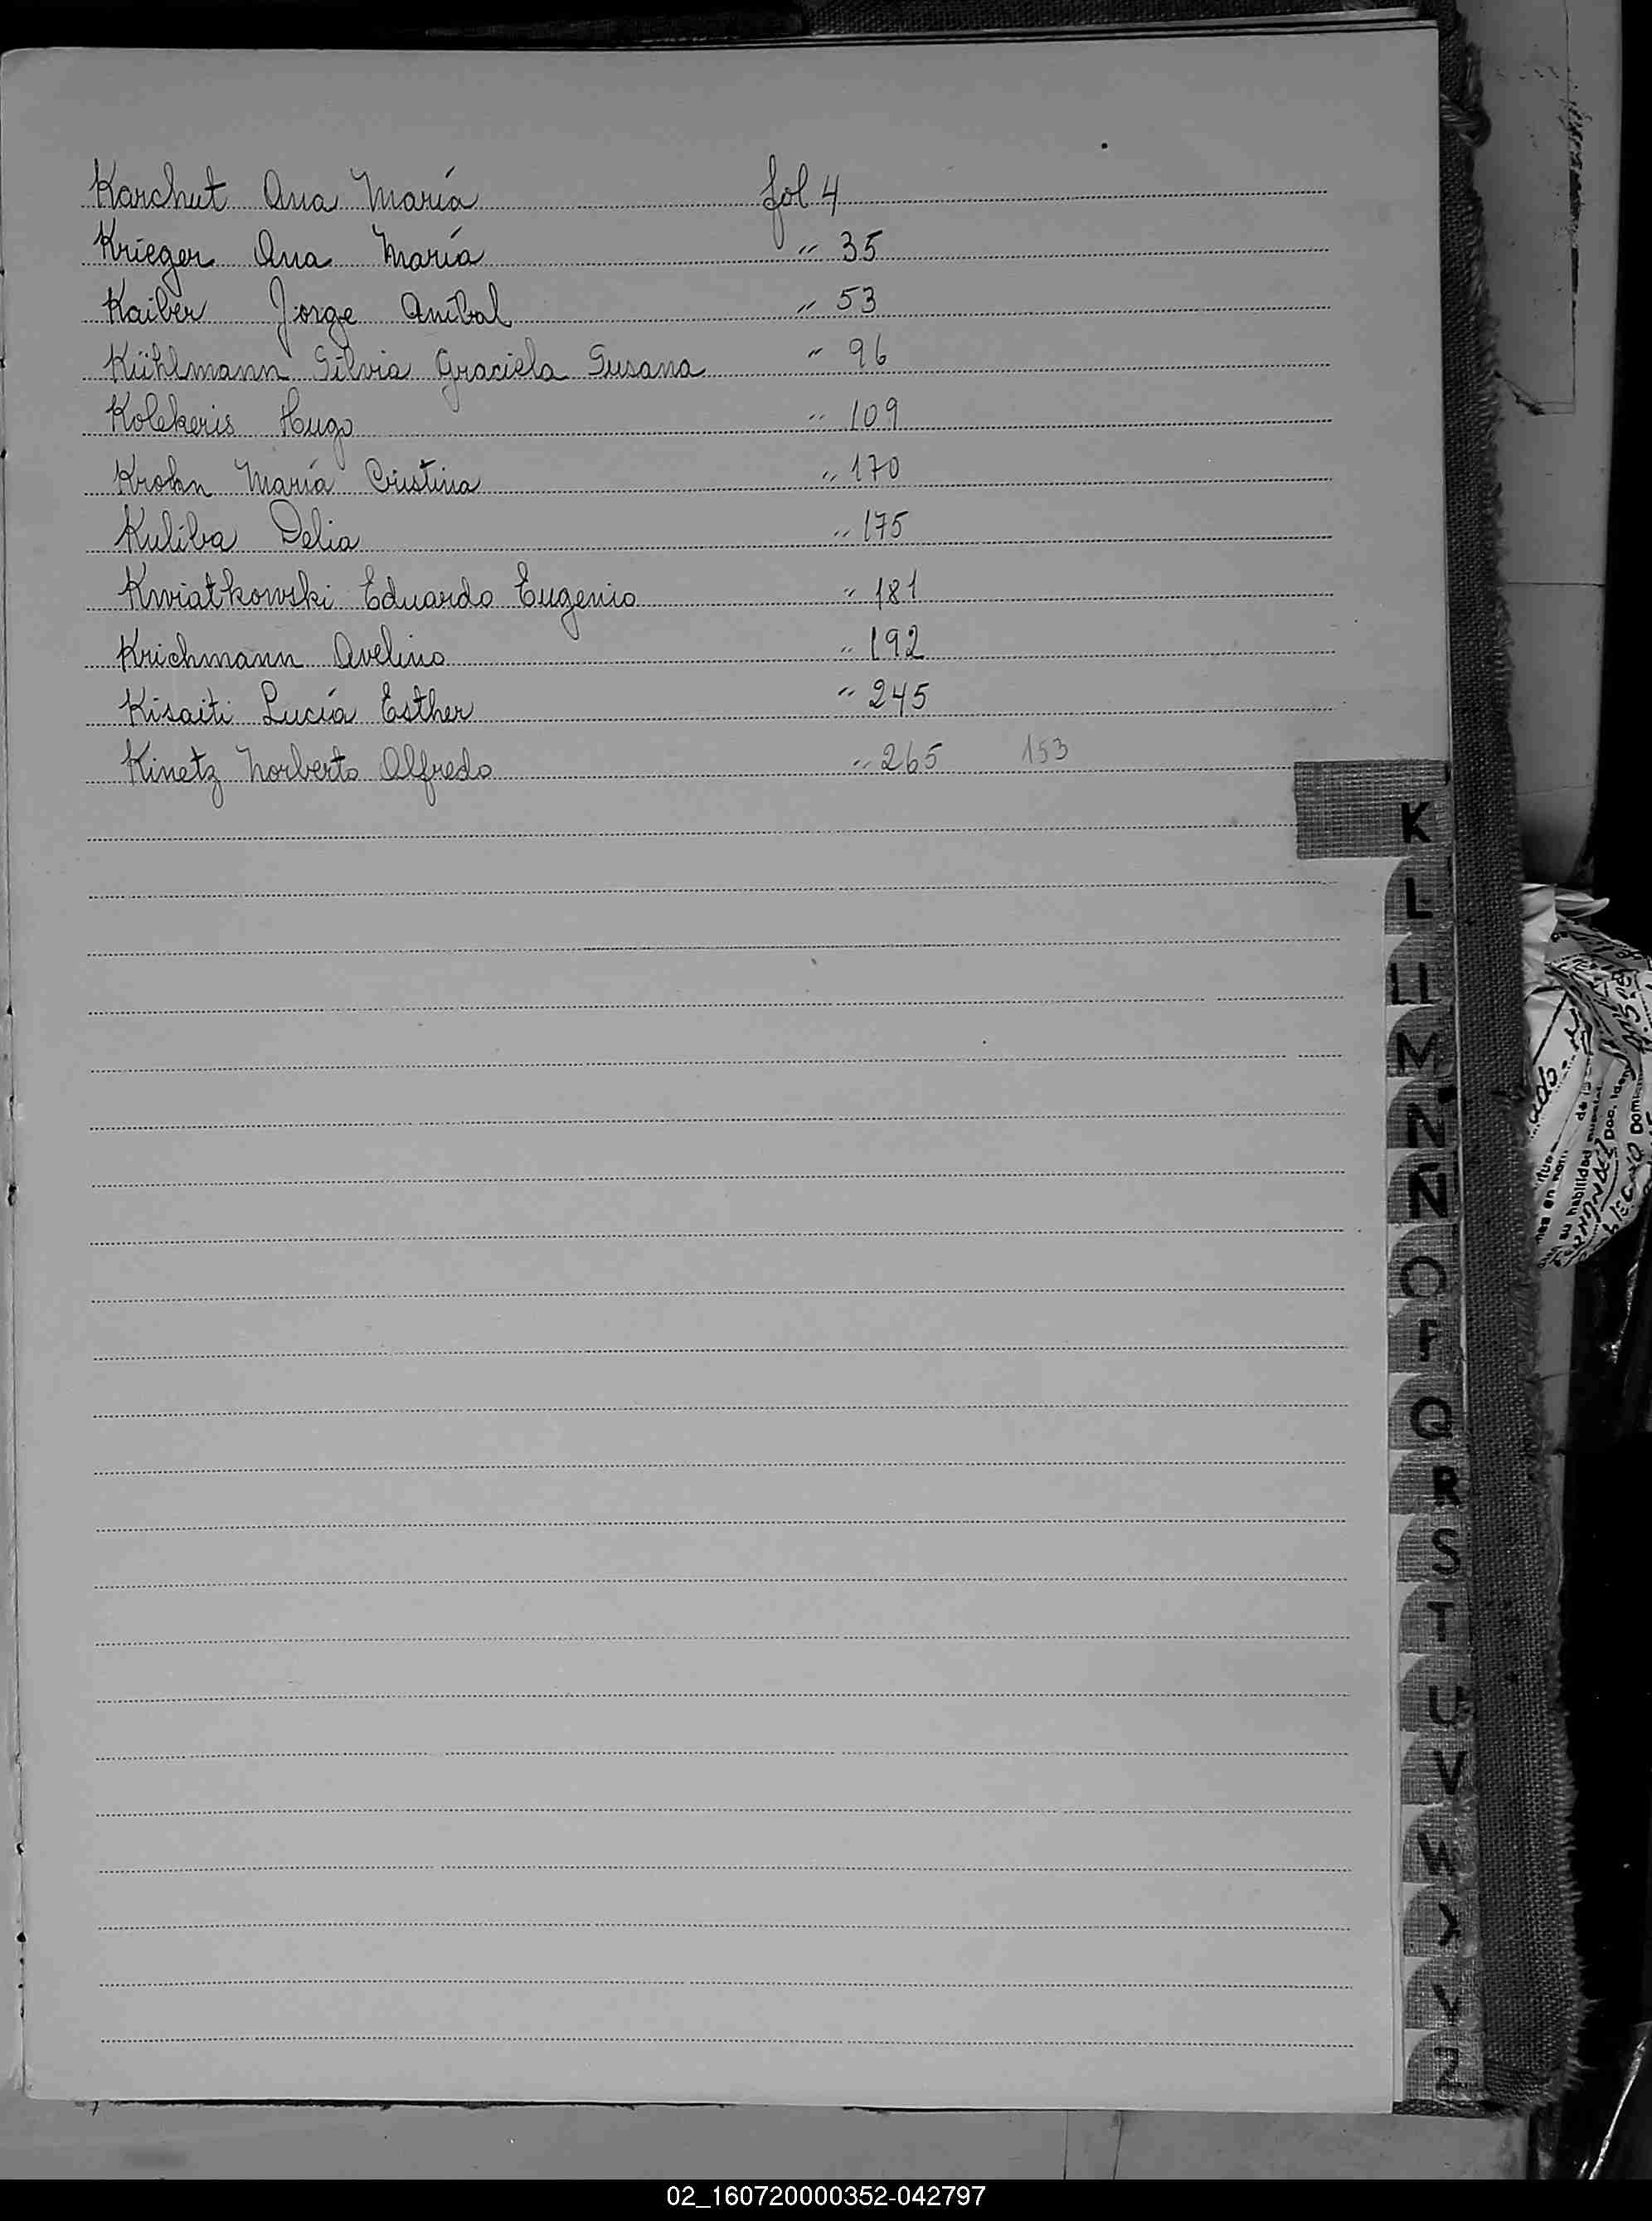 Karchut Ana María fol 4
Krieger Ana María " 35
Kaiber Jorge Aníbal " 53
Kühlmann Silvia Graciela Susana " 96
Kolekeris Hugo " 109
Krohn María Cristina " 170
Kuliba Delia " 175
Kwiatkowski Eduardo Eugenio " 181
Krichmann Avelino " 192
Kisaiti Lucía Esther " 245
Kinetz Norberto Alfredo " 265 153
K
L
Ll
M
N
Ñ
O
P
Q
R
S
T
U
V
W
X
Y
Z
02_160720000352-042797